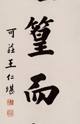 篁而
可莊王仁堪